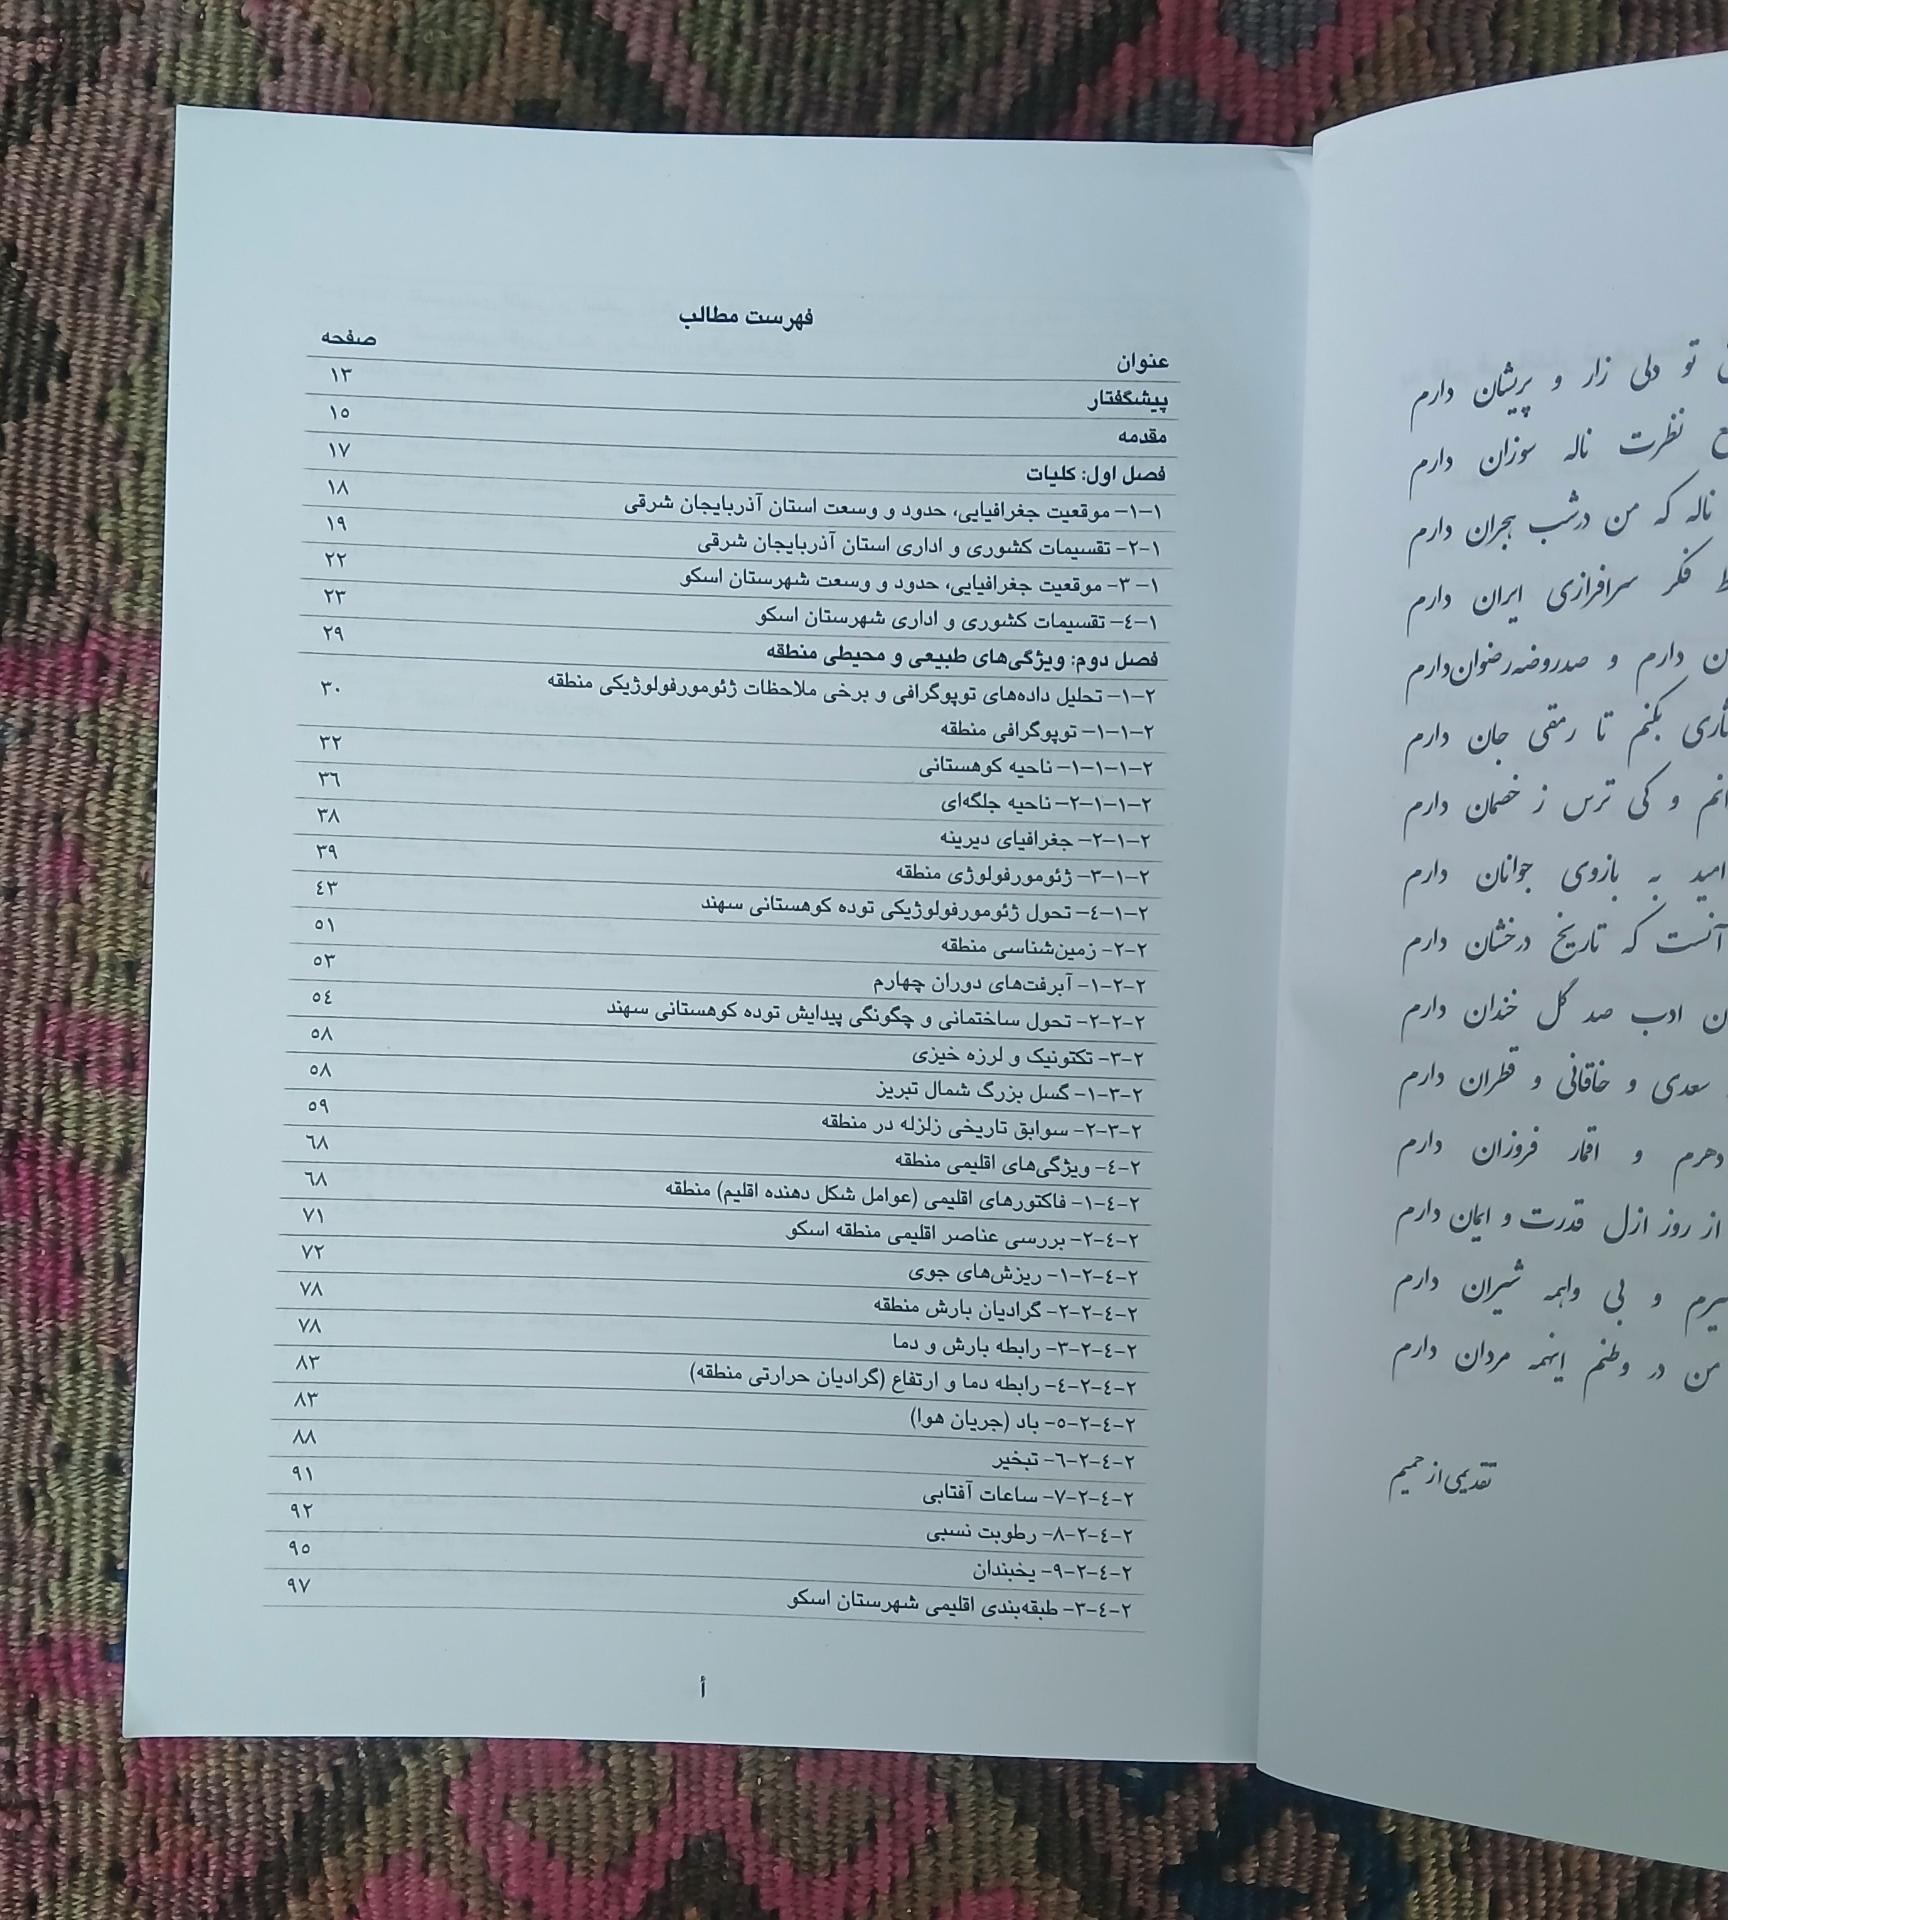 تو دلی زار و پریشان دارم
نظرت ناله سوزان دارم
ناله که من درشب هجران دارم
فکر سرافرازی ایران دارم
دارم و صدروضه رضوان دارم
بکنم تا رمقی جان دارم
و کی ترس ز خصمان دارم
امید به بازوی جوانان دارم
آنست که تاریخ درخشان دارم
ادب صد گل خندان دارم
سعدی و خاقانی و قطران دارم
دهرم و اقمار فروزان دارم
از روز ازل قدرت و ایمان دارم
و بی واهمه شیران دارم
من در وطنم اینهمه مردان دارم
تقدیمی از حمیم
فهرست مطالب
عنوان صفحه
پیشگفتار ۱۳
مقدمه ۱۵
فصل اول: کلیات ۱۷
۱-۱- موقعیت جغرافیایی، حدود و وسعت استان آذربایجان شرقی ۱۸
۱-۲- تقسیمات کشوری و اداری استان آذربایجان شرقی ۱۹
۱- ۳- موقعیت جغرافیایی، حدود و وسعت شهرستان اسکو ۲۲
۱-٤- تقسیمات کشوری و اداری شهرستان اسکو ۲۳
فصل دوم: ویژگی‌های طبیعی و محیطی منطقه ۲۹
۲-۱- تحلیل داده‌های توپوگرافی و برخی ملاحظات ژئومورفولوژیکی منطقه ۳۰
۲-۱-۱- توپوگرافی منطقه
۲-۱-۱-۱- ناحیه کوهستانی ۳۲
۲-۱-۱-۲- ناحیه جلگه‌ای ۳٦
۲-۱-۲- جغرافیای دیرینه ۳۸
۲-۱-۳- ژئومورفولوژی منطقه ۳۹
۲-۱-٤- تحول ژئومورفولوژیکی توده کوهستانی سهند ٤۳
۲-۲- زمین‌شناسی منطقه ۵۱
۲-۲-۱- آبرفت‌های دوران چهارم ۵۳
۲-۲-۲- تحول ساختمانی و چگونگی پیدایش توده کوهستانی سهند ۵٤
۲-۳- تکتونیک و لرزه خیزی ۵۸
۲-۳-۱- گسل بزرگ شمال تبریز ۵۸
۲-۳-۲- سوابق تاریخی زلزله در منطقه ۵۹
۲-٤- ویژگی‌های اقلیمی منطقه ٦۸
۲-٤-۱- فاکتورهای اقلیمی (عوامل شکل دهنده اقلیم) منطقه ٦۸
۲-٤-۲- بررسی عناصر اقلیمی منطقه اسکو ۷۱
۲-٤-۲-۱- ریزش‌های جوی ۷۲
۲-٤-۲-۲- گرادیان بارش منطقه ۷۸
۲-٤-۲-۳- رابطه بارش و دما ۷۸
۲-٤-۲-٤- رابطه دما و ارتفاع (گرادیان حرارتی منطقه) ۸۳
۲-٤-۲-۵- باد (جریان هوا) ۸۳
۲-٤-۲-٦- تبخیر ۸۸
۲-٤-۲-۷- ساعات آفتابی ۹۱
۲-٤-۲-۸- رطوبت نسبی ۹۲
۲-٤-۲-۹- یخبندان ۹۵
۲-٤-۳- طبقه‌بندی اقلیمی شهرستان اسکو ۹۷
أ